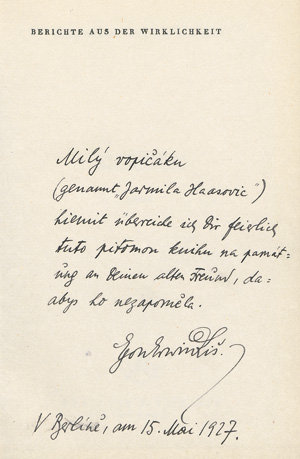 BERICHTE AUS DER WIRKLICHKEIT
Milý vopičáku
(genannt „Jarmila Haasovic“)
hiemit übereiche ich Dir feierlich
tuto pitomon knihu na památ-
ung an Deinen alten Freund, da=
abys ho nezapoměla.
Egon Erwin Kiš.
V Berlíně, am 15. Mai 1927.